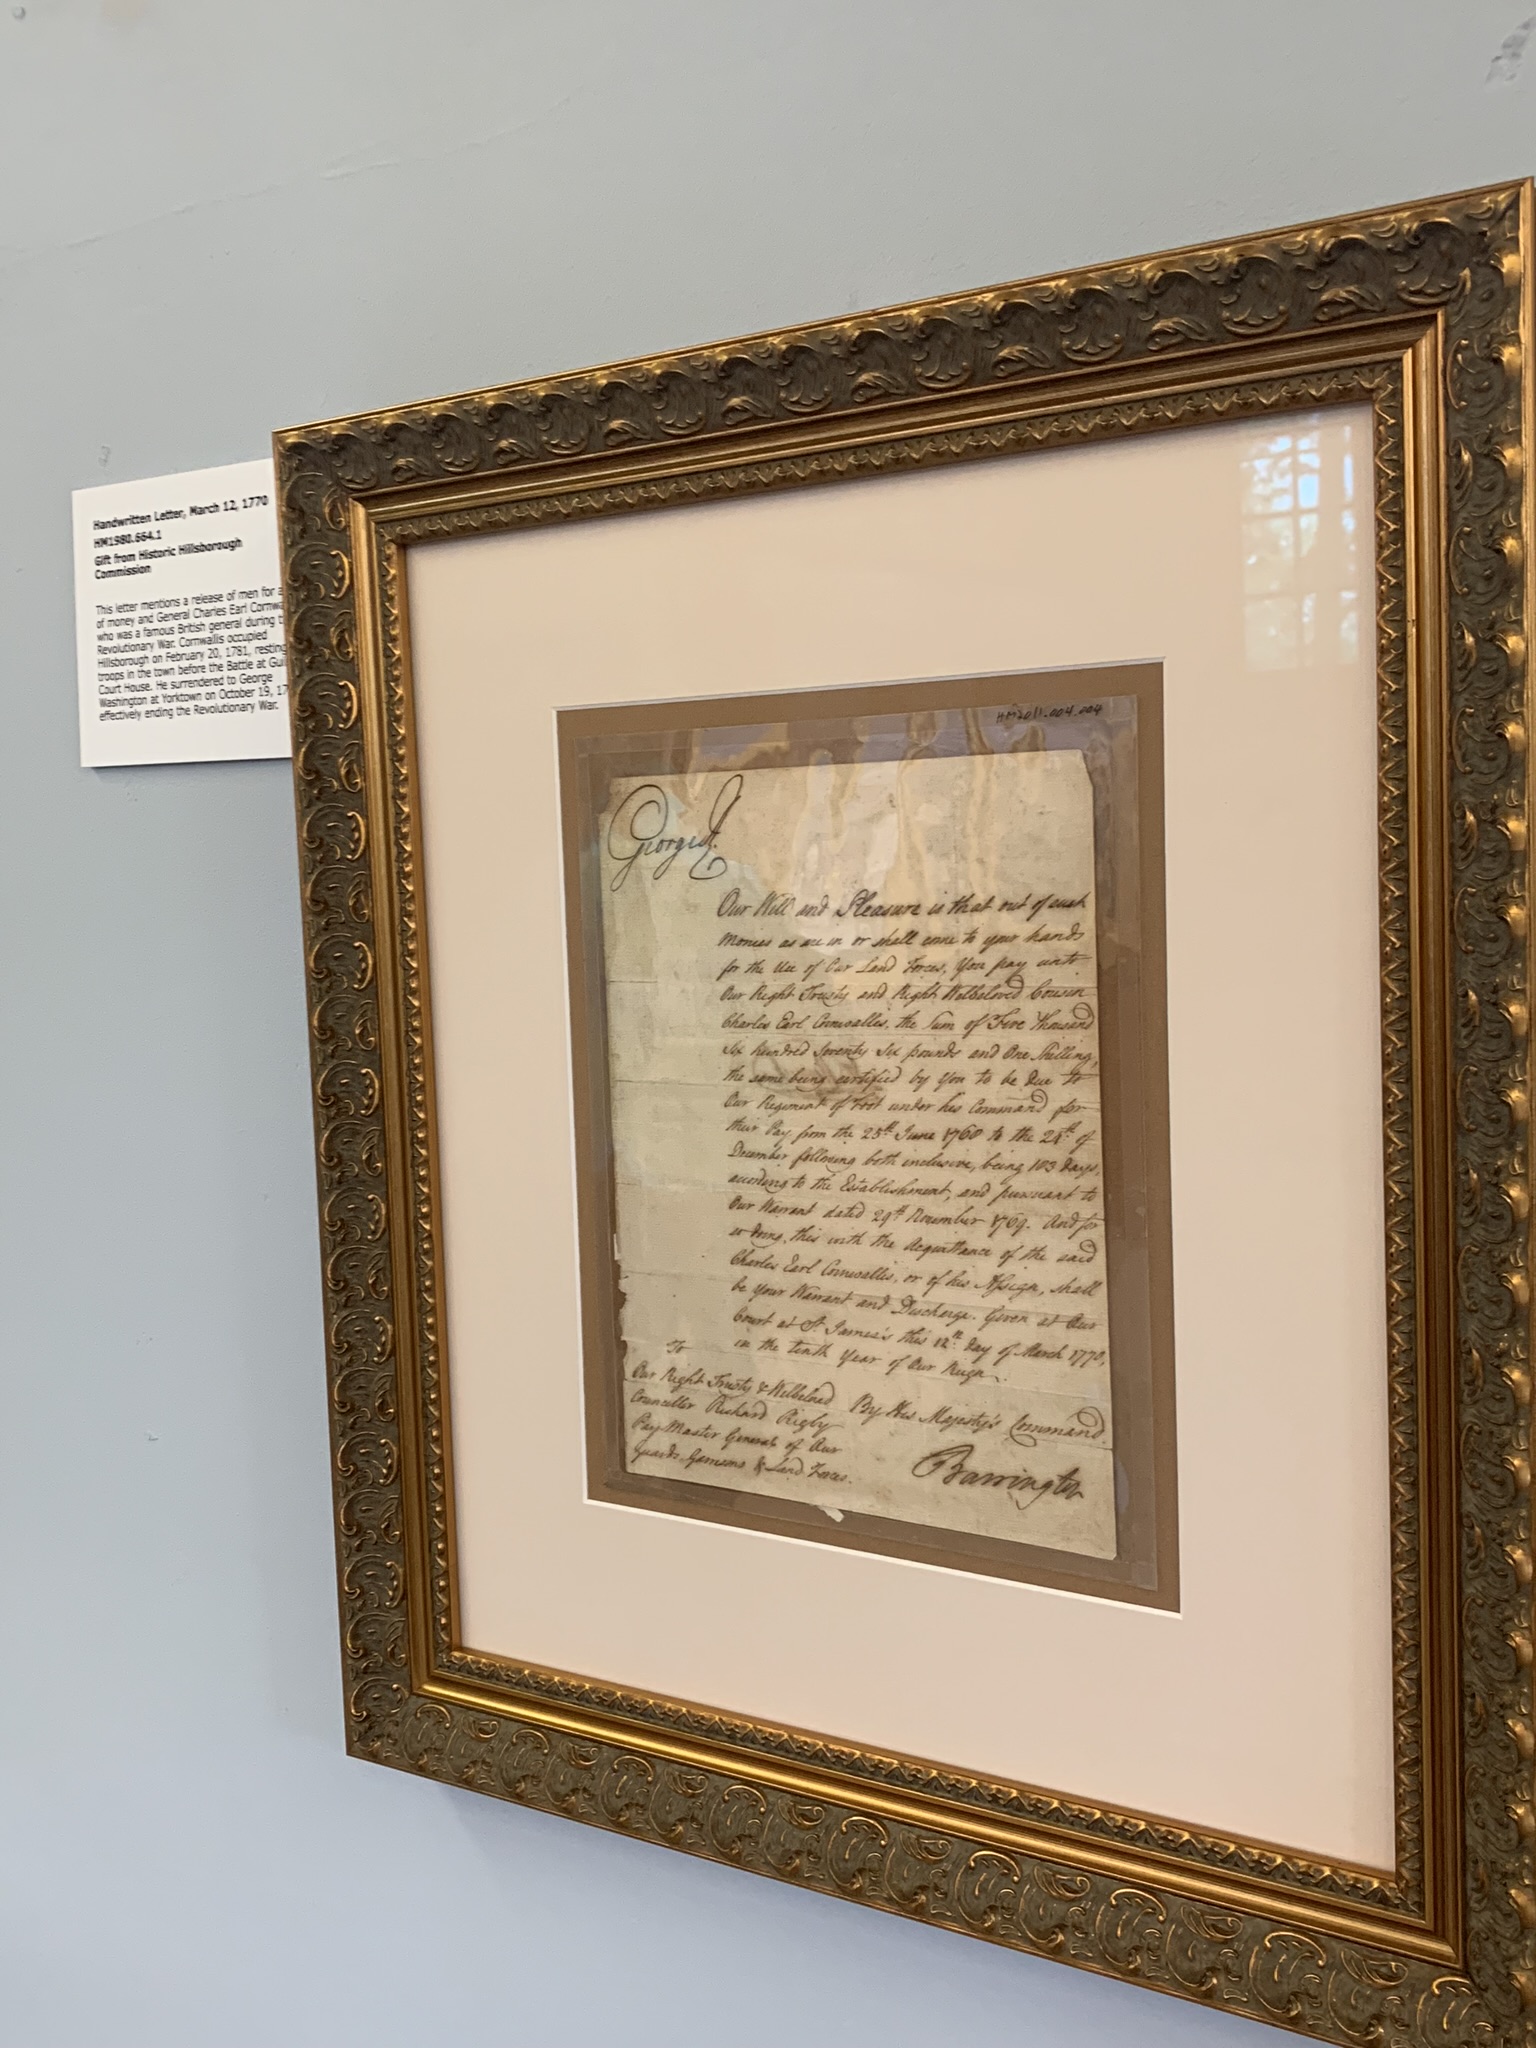 Handwritten Letter, March 12, 1770
HM1980.664.1
Gift from Historic Hillsborough
Commission
This letter mentions a release of men for a
of money and General Charles Earl
who was a famous British general during
Revolutionary War. Cornwallis occupied
Hillsborough on February 20, 1781, resting
troops in the town before the Battle at
Court House. He surrendered to George
Washington at Yorktown on October 19,
effectively ending the Revolutionary War.
George R.
Our Will and Pleasure is that out of such
Monies as are in or shall come to your hands
for the Use of Our Land Forces, You pay unto
Our Right Trusty and Right Welbeloved Cousin
Charles Earl Cornwallis, the Sum of Five Thousand
Six hundred Seventy Six pounds and One Shilling,
the same being certified by You to be Due to
Our Regiment of Foot under his Command for
their Pay from the 25th June 1760 to the 24th of
December following both inclusive, being 183 days,
according to the Establishment, and pursuant to
Our Warrant dated 29th November 1769. And for
so doing, this with the Acquittance of the said
Charles Earl Cornwallis, or of his Assign, shall
be Your Warrant and Discharge. Given at Our
Court at St. James's this 12th day of March 1770,
in the tenth Year of Our Reign.
To
Our Right Trusty & Welbeloved
Councellor Richard Rigby
Pay Master General of Our
Guards, Garrisons & Land Forces.
By His Majesty's Command.
Barrington